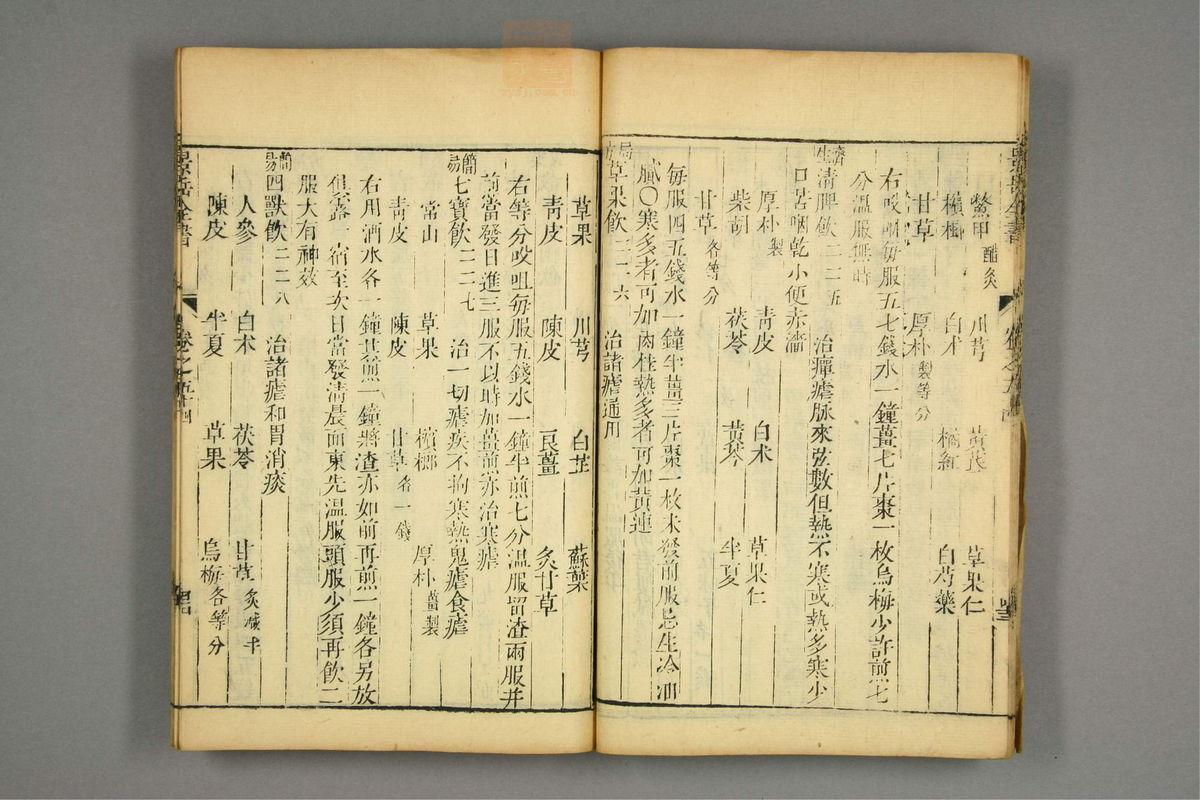 鱉甲醋炙 川芎 黃芪 草果仁
檳榔 白朮 橘紅 白芍藥
甘草 厚朴製等分
右㕮咀每服五七錢水一鐘薑七片棗一枚烏梅少許煎七
分溫服無時
濟生清脾飲二二五 治癉瘧脉來弦數但熱不寒或熱多寒少
口苦咽乾小便赤濇
厚朴製 青皮 白朮 草果仁
柴胡 茯苓 黃芩 半夏
甘草各等分
每服四五錢水一鐘半薑三片棗一枚未發前服忌生冷油
膩〇寒多者可加肉桂熱多者可加黃連
局方草果飲二二六 治諸瘧通用
草果 川芎 白芷 蘇葉
青皮 陳皮 良薑 炙甘草
右等分㕮咀每服五錢水一鐘半煎七分溫服留渣兩服并
煎當發日進三服不以時加薑煎亦治寒瘧
簡易七寶飲二二七 治一切瘧疾不拘寒熱鬼瘧食瘧
常山 草果 檳榔 厚朴薑製
青皮 陳皮 甘草各一錢
右用酒水各一鐘其煎一鐘將渣亦如前再煎一鐘各另放
俱露一宿至次日當發清晨面東先溫服頭服少須再飲二
服大有神效
簡易四獸飲二二八 治諸瘧和胃消痰
人參 白朮 茯苓 甘草炙減半
陳皮 半夏 草果 烏梅各等分
景岳全書 卷之五十四